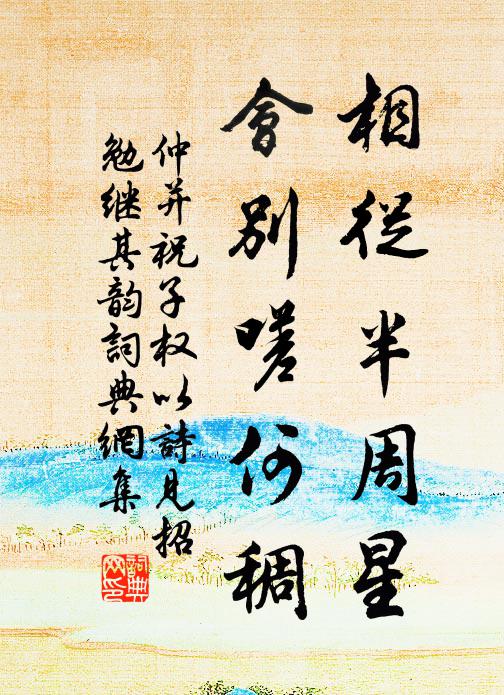 相從半周星
會別嗟何稠
仲并祝子权以詩見招
勉继其韵詞典網集
詞典
网印